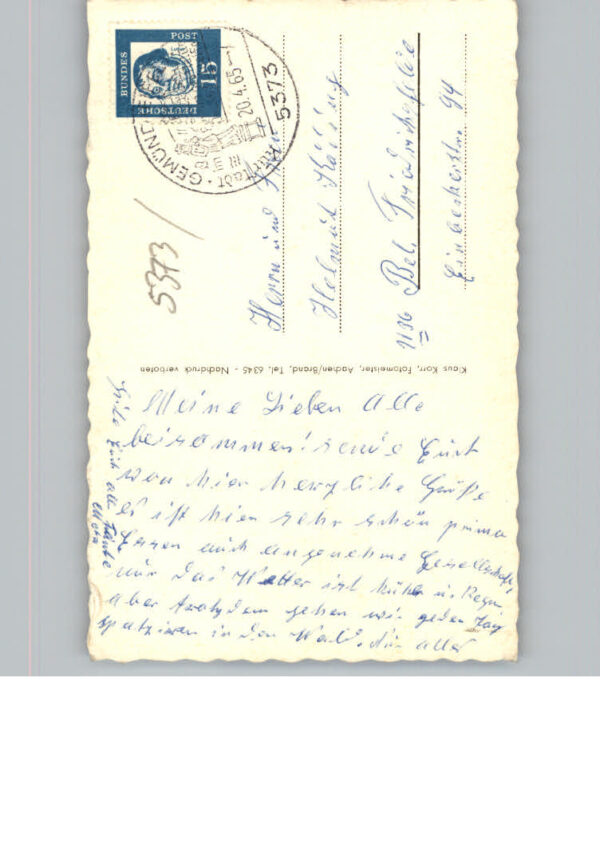 DEUTSCHE
BUNDES
POST
15
GEMÜND
20.4.65
5373
5373
Herrn und
Helmut
1136 Bel. Friedrichsfelde
94
Klaus Korr, Fotomeister, Aachen/Brand, Tel. 6345 - Nachdruck verboten
Meine Lieben Alle
beisammen! sende Euch
von hier herzliche Grüße
es ist hier sehr schön prima
Essen auch angenehme Gesellschaft,
nur das Wetter ist kühl u. Regen
aber trotzdem gehen wir jeden Tag
spatzieren in den Wald. Für alle
Euch alle